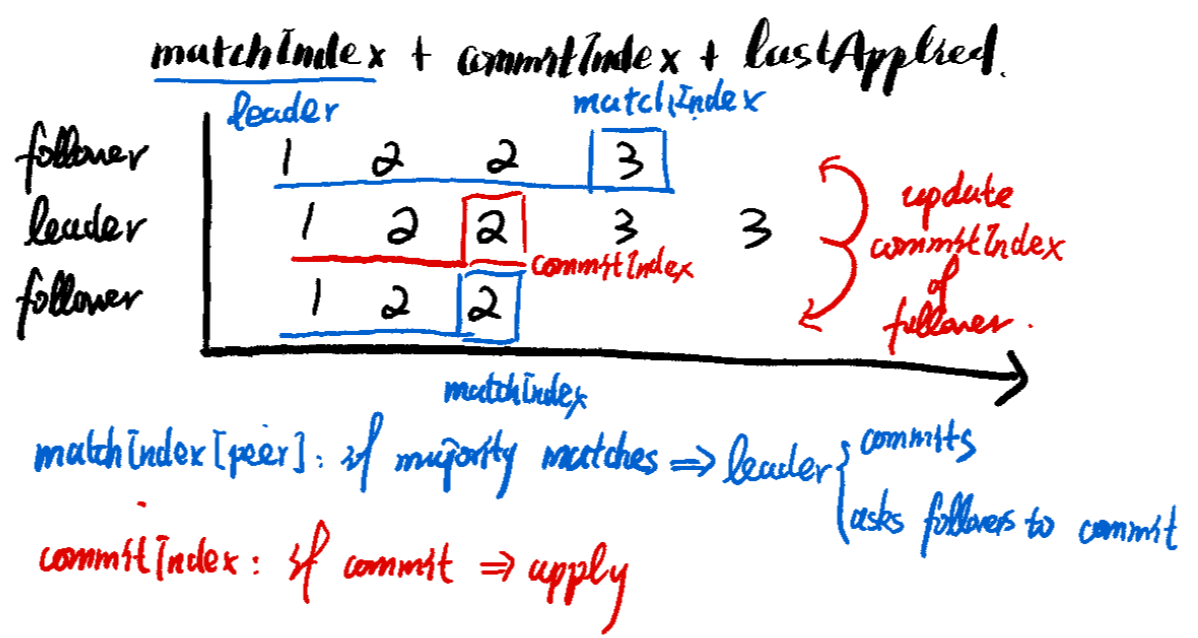 matchIndex + commitIndex + lastApplied.
leader matchIndex
follower 1 2 2 3
leader 1 2 2 3 3
commitIndex
follower 1 2 2
update
commitIndex
of
follower.
matchIndex
matchIndex[peer]: if majority matches ⇒ leader { commits
asks followers to commit
commitIndex: if commit ⇒ apply